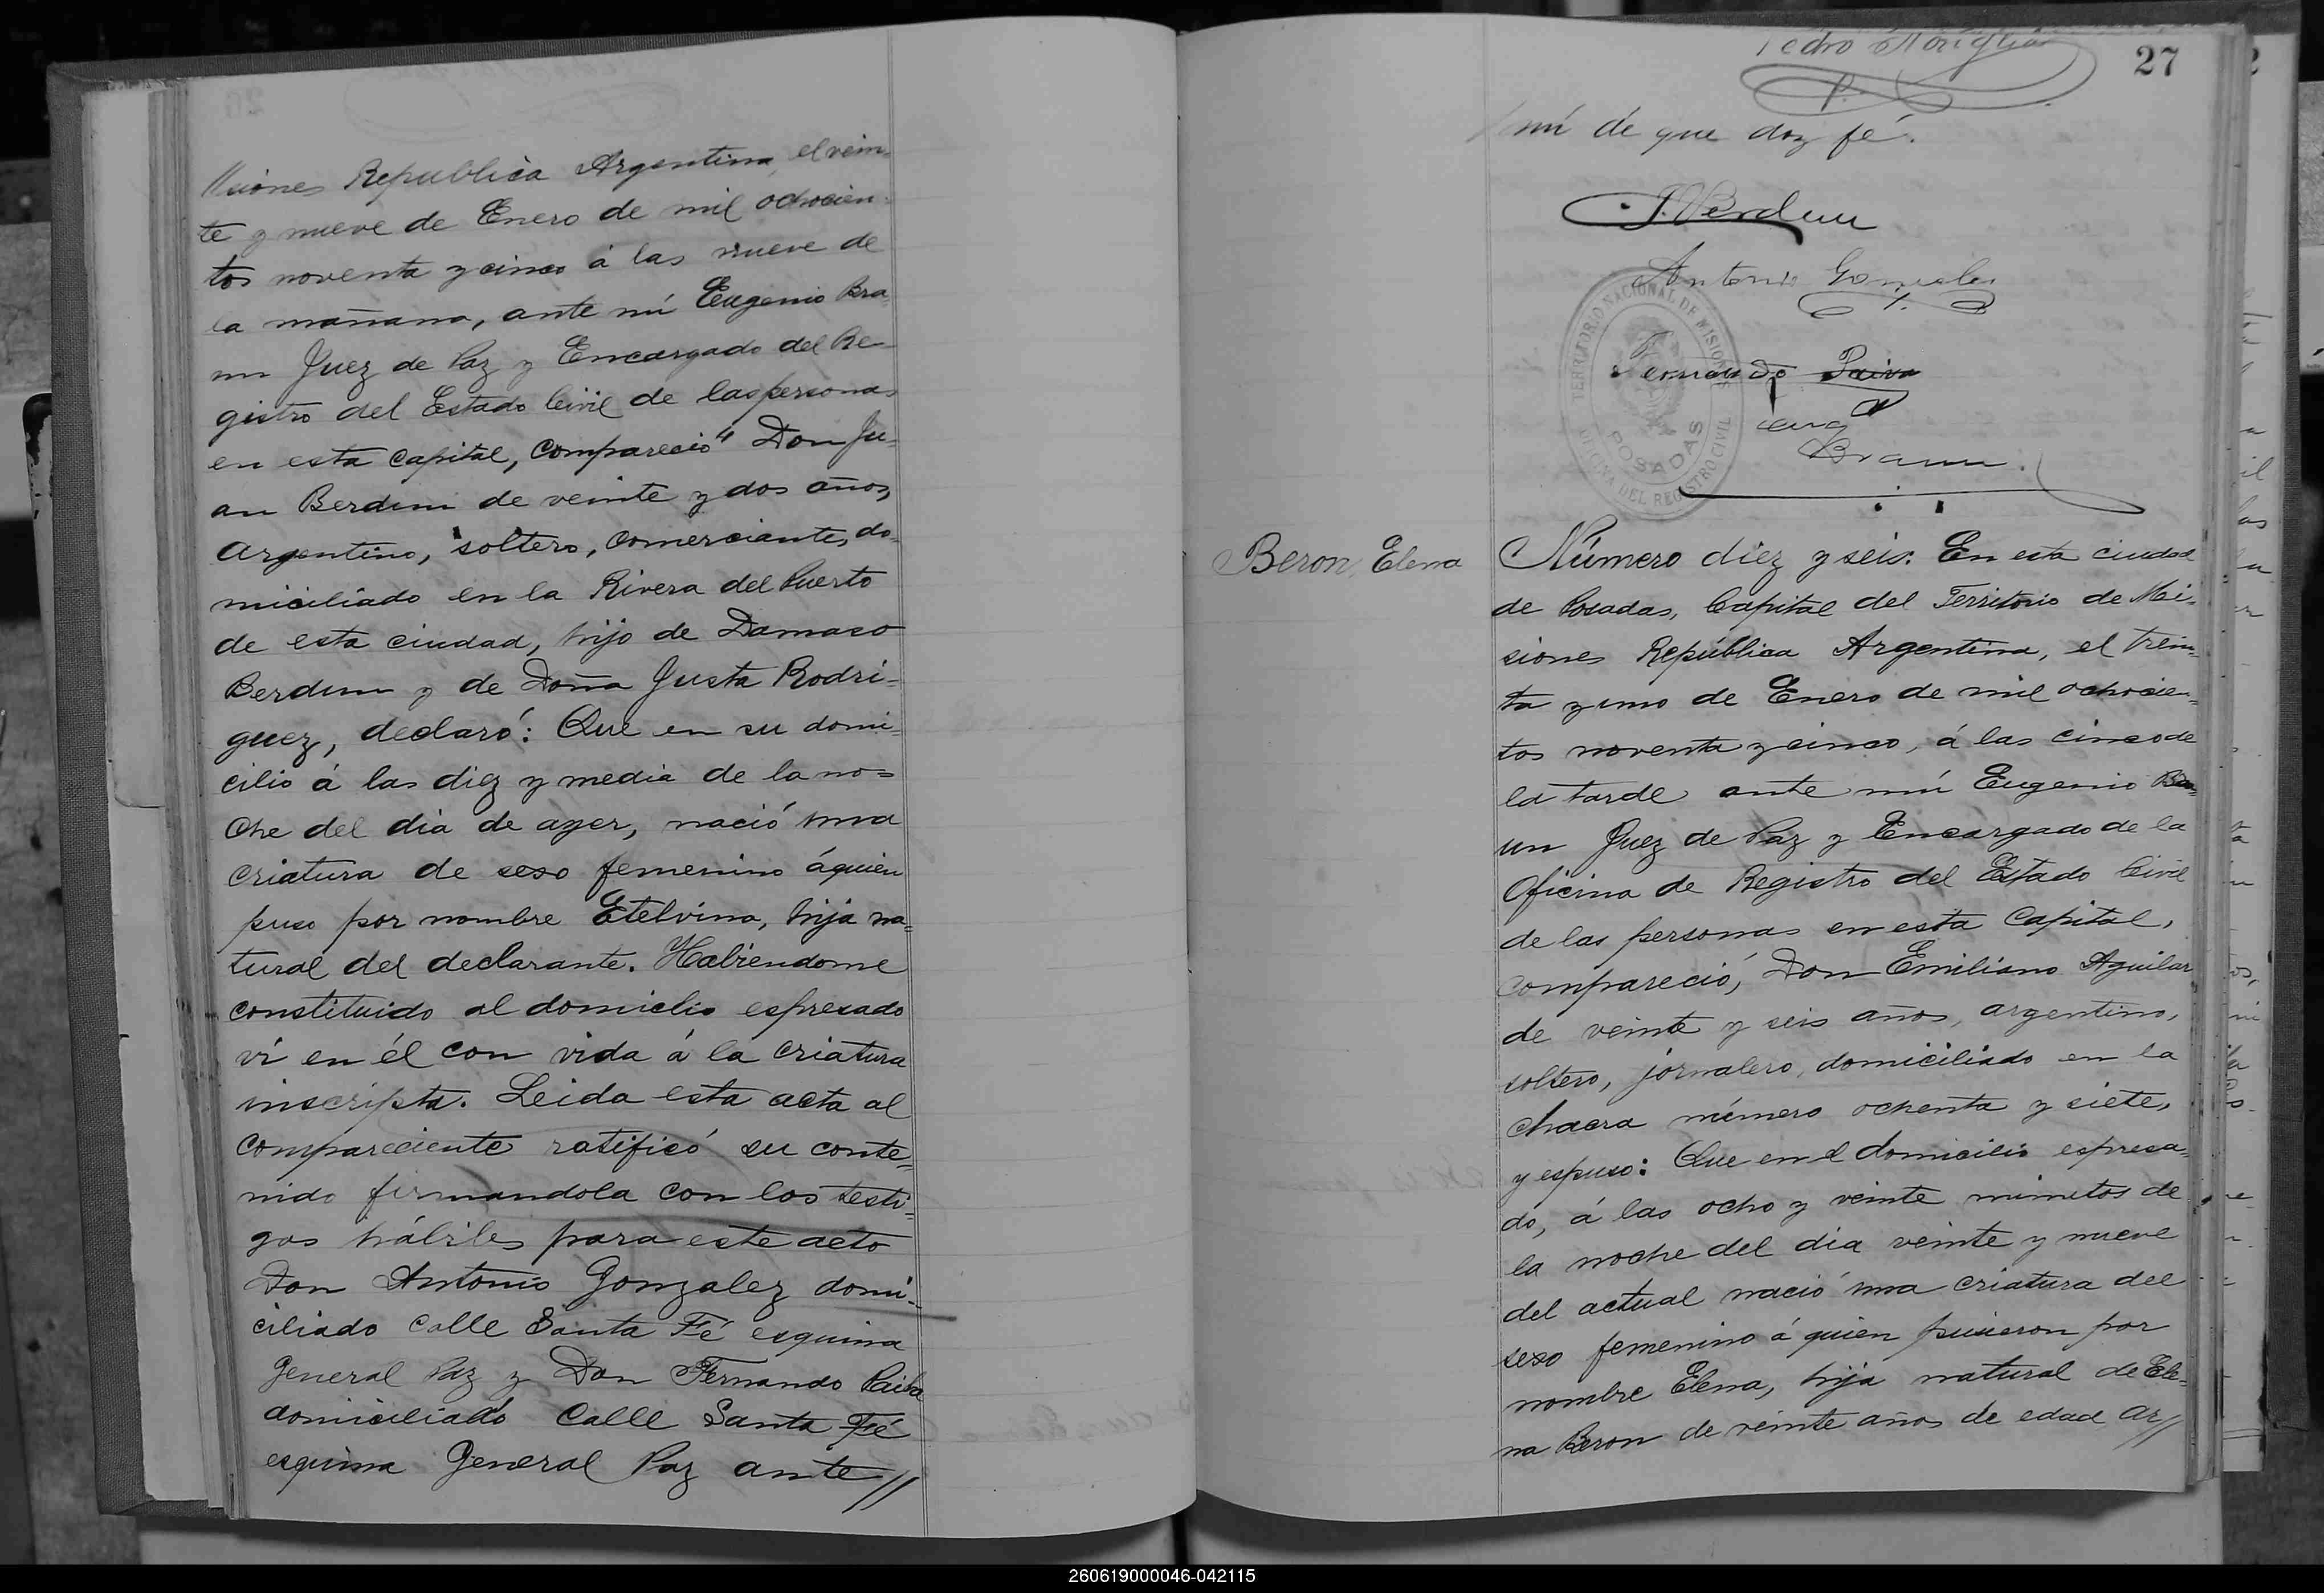 //siones Republica Argentina, el vein-
te y nueve de Enero de mil ochocien-
tos noventa y cinco á las nueve de
la mañana, ante mí Eugenio Bra-
un Juez de Paz y Encargado del Re-
gistro del Estado Civil de las personas
en esta Capital, Compareció" Don Ju-
an Berdun de veinte y dos años,
Argentino, soltero, Comerciante, do-
miciliado en la Rivera del Puerto
de esta ciudad, hijo de Damaso
Berdun y de Doña Justa Rodri-
guez, declaró: Que en su domi-
cilio á las diez y media de la no=
che del dia de ayer, nació una
criatura de sexo femenino á quien
puso por nombre Etelvina, hija na=
tural del declarante. Habiendome
constituido al domiclio espresado
ví en él con vida á la Criatura
inscripta. Leida esta acta al
Compareciente ratificó su conte=
nido firmandola con los testi=
gos hábiles para este acto
Don Antonio Gonzalez domi-
ciliado Calle Santa Fé esquina
General Paz y Don Fernando Paiba
domiciliado Calle Santa Fé
esquina General Paz ante//
Pedro
27
mí de que doy fé.
J. Berdun
Antonio Gonzales
Fernando Paiva
Eug
Braun.
TERRITORIO NACIONAL DE MISIONES
POSADAS
OFICINA DEL REGISTRO CIVIL
Beron, Elena
Número diez y seis: En esta ciudad
de Posadas, Capital del Territorio de Mi-
siones República Argentina, el trein-
ta y uno de Enero de mil ochocien-
tos noventa y cinco, á las cinco de
la tarde ante mí Eugenio Bra-
un Juez de Paz y Encargado de la
Oficina de Registro del Estado Civil
de las personas en esta Capital,
compareció, Don Emiliano Aguilar
de veinte y seis años, argentino,
soltero, jornalero, domiciliado en la
chacra número ochenta y siete,
y espuso: Que en el domicilio espresa-
do, á las ocho y veinte minutos de
la noche del dia veinte y nueve
del actual nació una criatura del
sexo femenino á quien pusieron por
nombre Elena, hija natural de Ele-
na Beron de veinte años de edad ar//
260619000046-042115